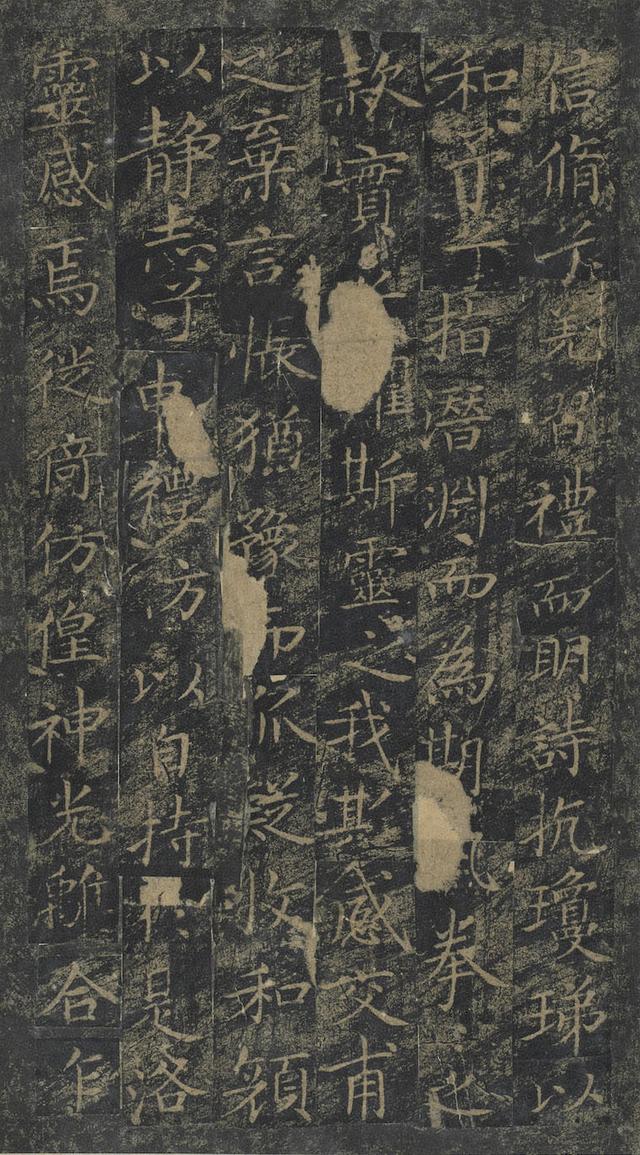 信脩兮羌習禮而眀詩抗瓊珶以
和予兮指潛淵而為期拳〻之
款實斯靈之我欺感交甫
之棄言悵猶豫而狐疑收和顏
以静志兮申禮防以自持於是洛
靈感焉徙倚仿偟神光離合乍